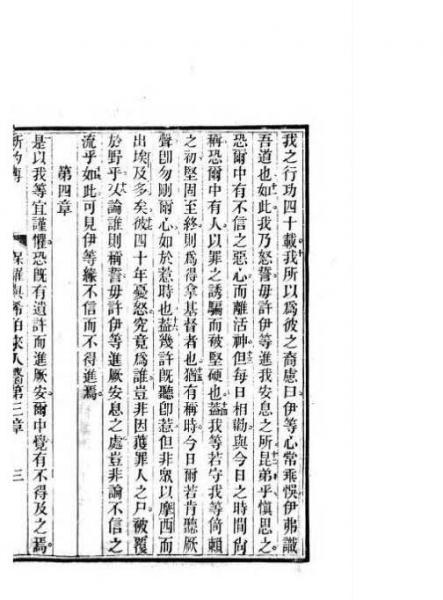 我之行功四十載我所以爲彼之裔慮曰伊等心常乖悞伊弗識
吾道也如此我乃怒誓毋許伊等進我安息之所昆弟乎愼思之
恐爾中有不信之惡心而離活神但每日相勸與今日之時間尙
稱恐爾中有人以罪之誘騙而被堅硬也蓋我等若守我等倚賴
之初堅固至終則爲得拿基督者也猶有稱時今日爾若肯聽厥
聲卽勿剛爾心如於惹時也蓋幾許旣聽卽惹但非眾以摩西而
出埃及多矣彼四十年憂怒究竟爲誰豈非因蔑罪人之尸被覆
於野乎又論誰則稱誓毋許伊等進厥安息之處豈非論不信之
流乎如此可見伊等緣不信而不得進焉
第四章
是以我等宜謹懼恐旣有遺許而進厥安爾中覺有不得及之焉
新約傳 保羅與希伯來人書第三章 三